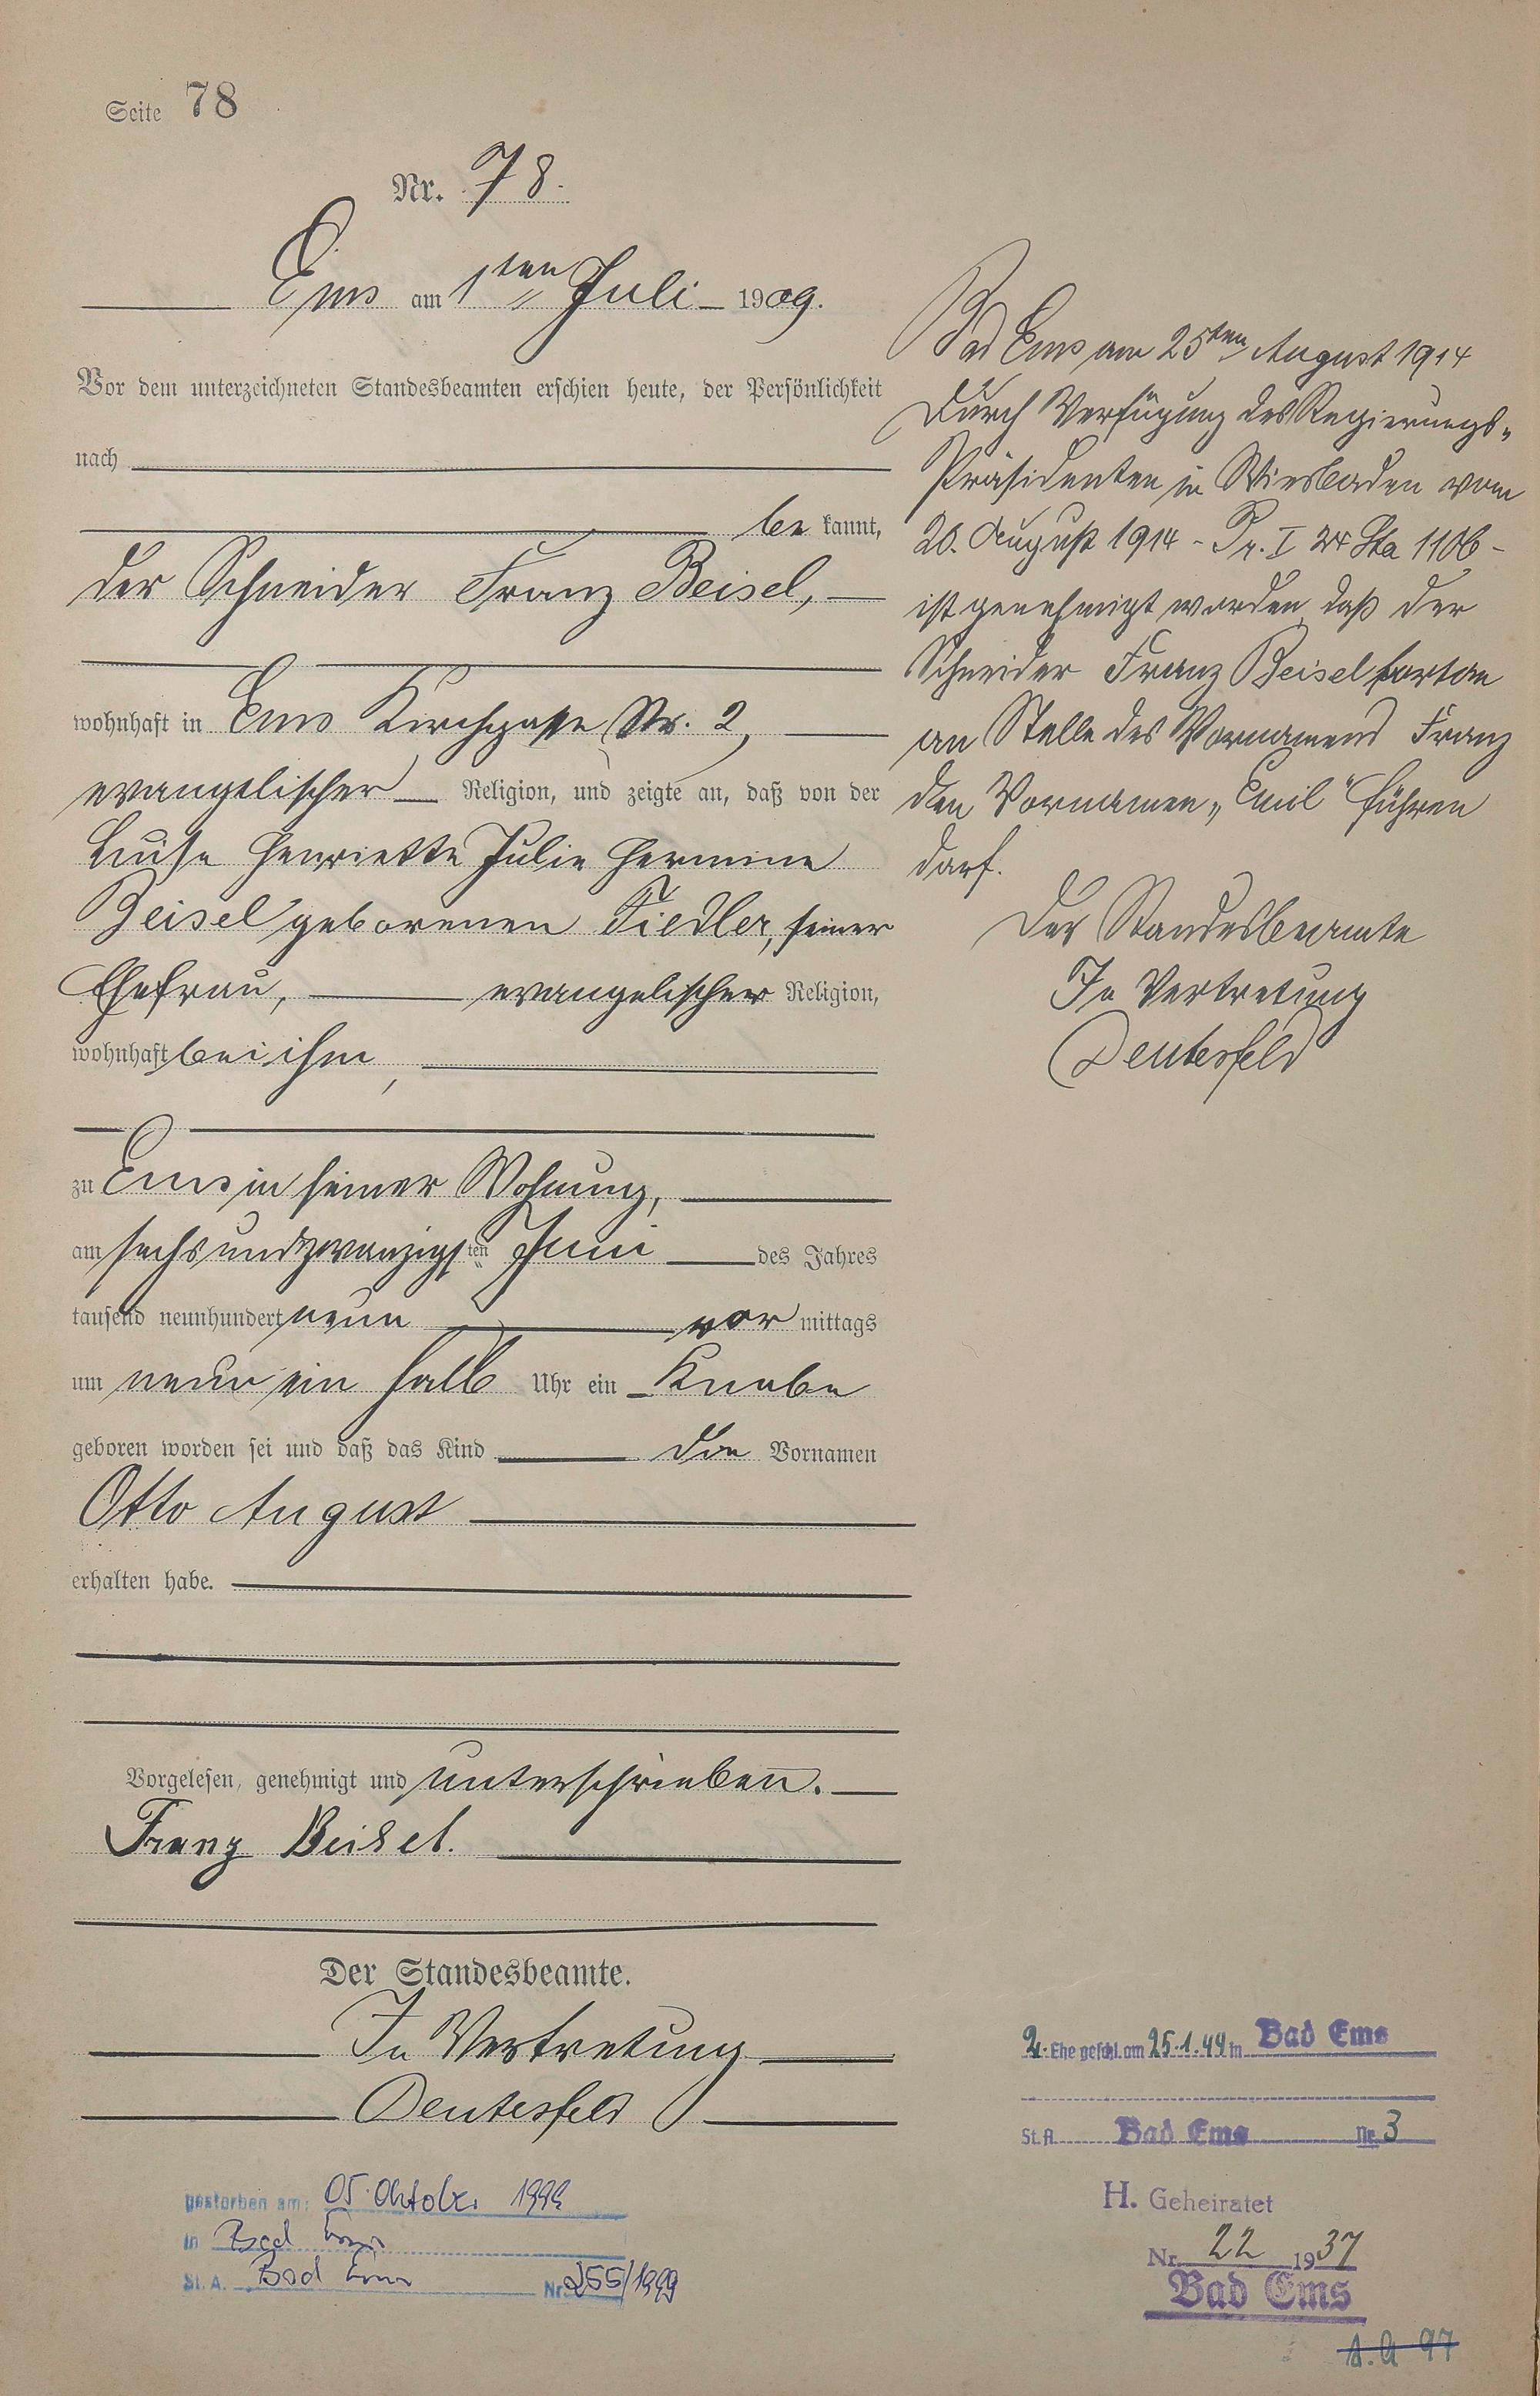 Seite 78
Nr. 78.
Ems am 1ten Juli 1909.
Vor dem unterzeichneten Standesbeamten erschien heute, der Persönlichkeit
nach
be kannt,
der Schneider Franz Beisel,
wohnhaft in Ems Kirchgasse Nr. 2,
evangelischer Religion, und zeigte an, daß von der
Luise Henriette Julie Hermine
Beisel geborenen Fiedler, seiner
Ehefrau, evangelischer Religion,
wohnhaft bei ihm,
zu Ems in seiner Wohnung,
am sechsundzwanzigsten Juni des Jahres
tausend neunhundert neun vor mittags
um neun ein halb Uhr ein Knabe
geboren worden sei und daß das Kind die Vornamen
Otto August
erhalten habe.
Vorgelesen, genehmigt und unterschrieben.
Franz Beisel.
Der Standesbeamte.
In Vertretung
Deutesfeld
gestorben am: 05. Oktober
in Bad Ems
St. A. Bad Ems Nr. 255/1999
Bad Ems am 25ten August 1914
Durch Verfügung des Regierungs-
Präsidenten in Wiesbaden vom
20. August 1914 - Pr. I Sta 1106 -
ist genehmigt worden, daß der
Schneider Franz Beisel fortan
an Stelle des Vornamens Franz
den Vornamen „Emil“ führen
darf.
Der Standesbeamte
In Vertretung
Deutesfeld
2. Ehe geschl. am 25.1.44 in Bad Ems
St. A. Bad Ems Nr. 3
H. Geheiratet
Nr. 22 1937
Bad Ems